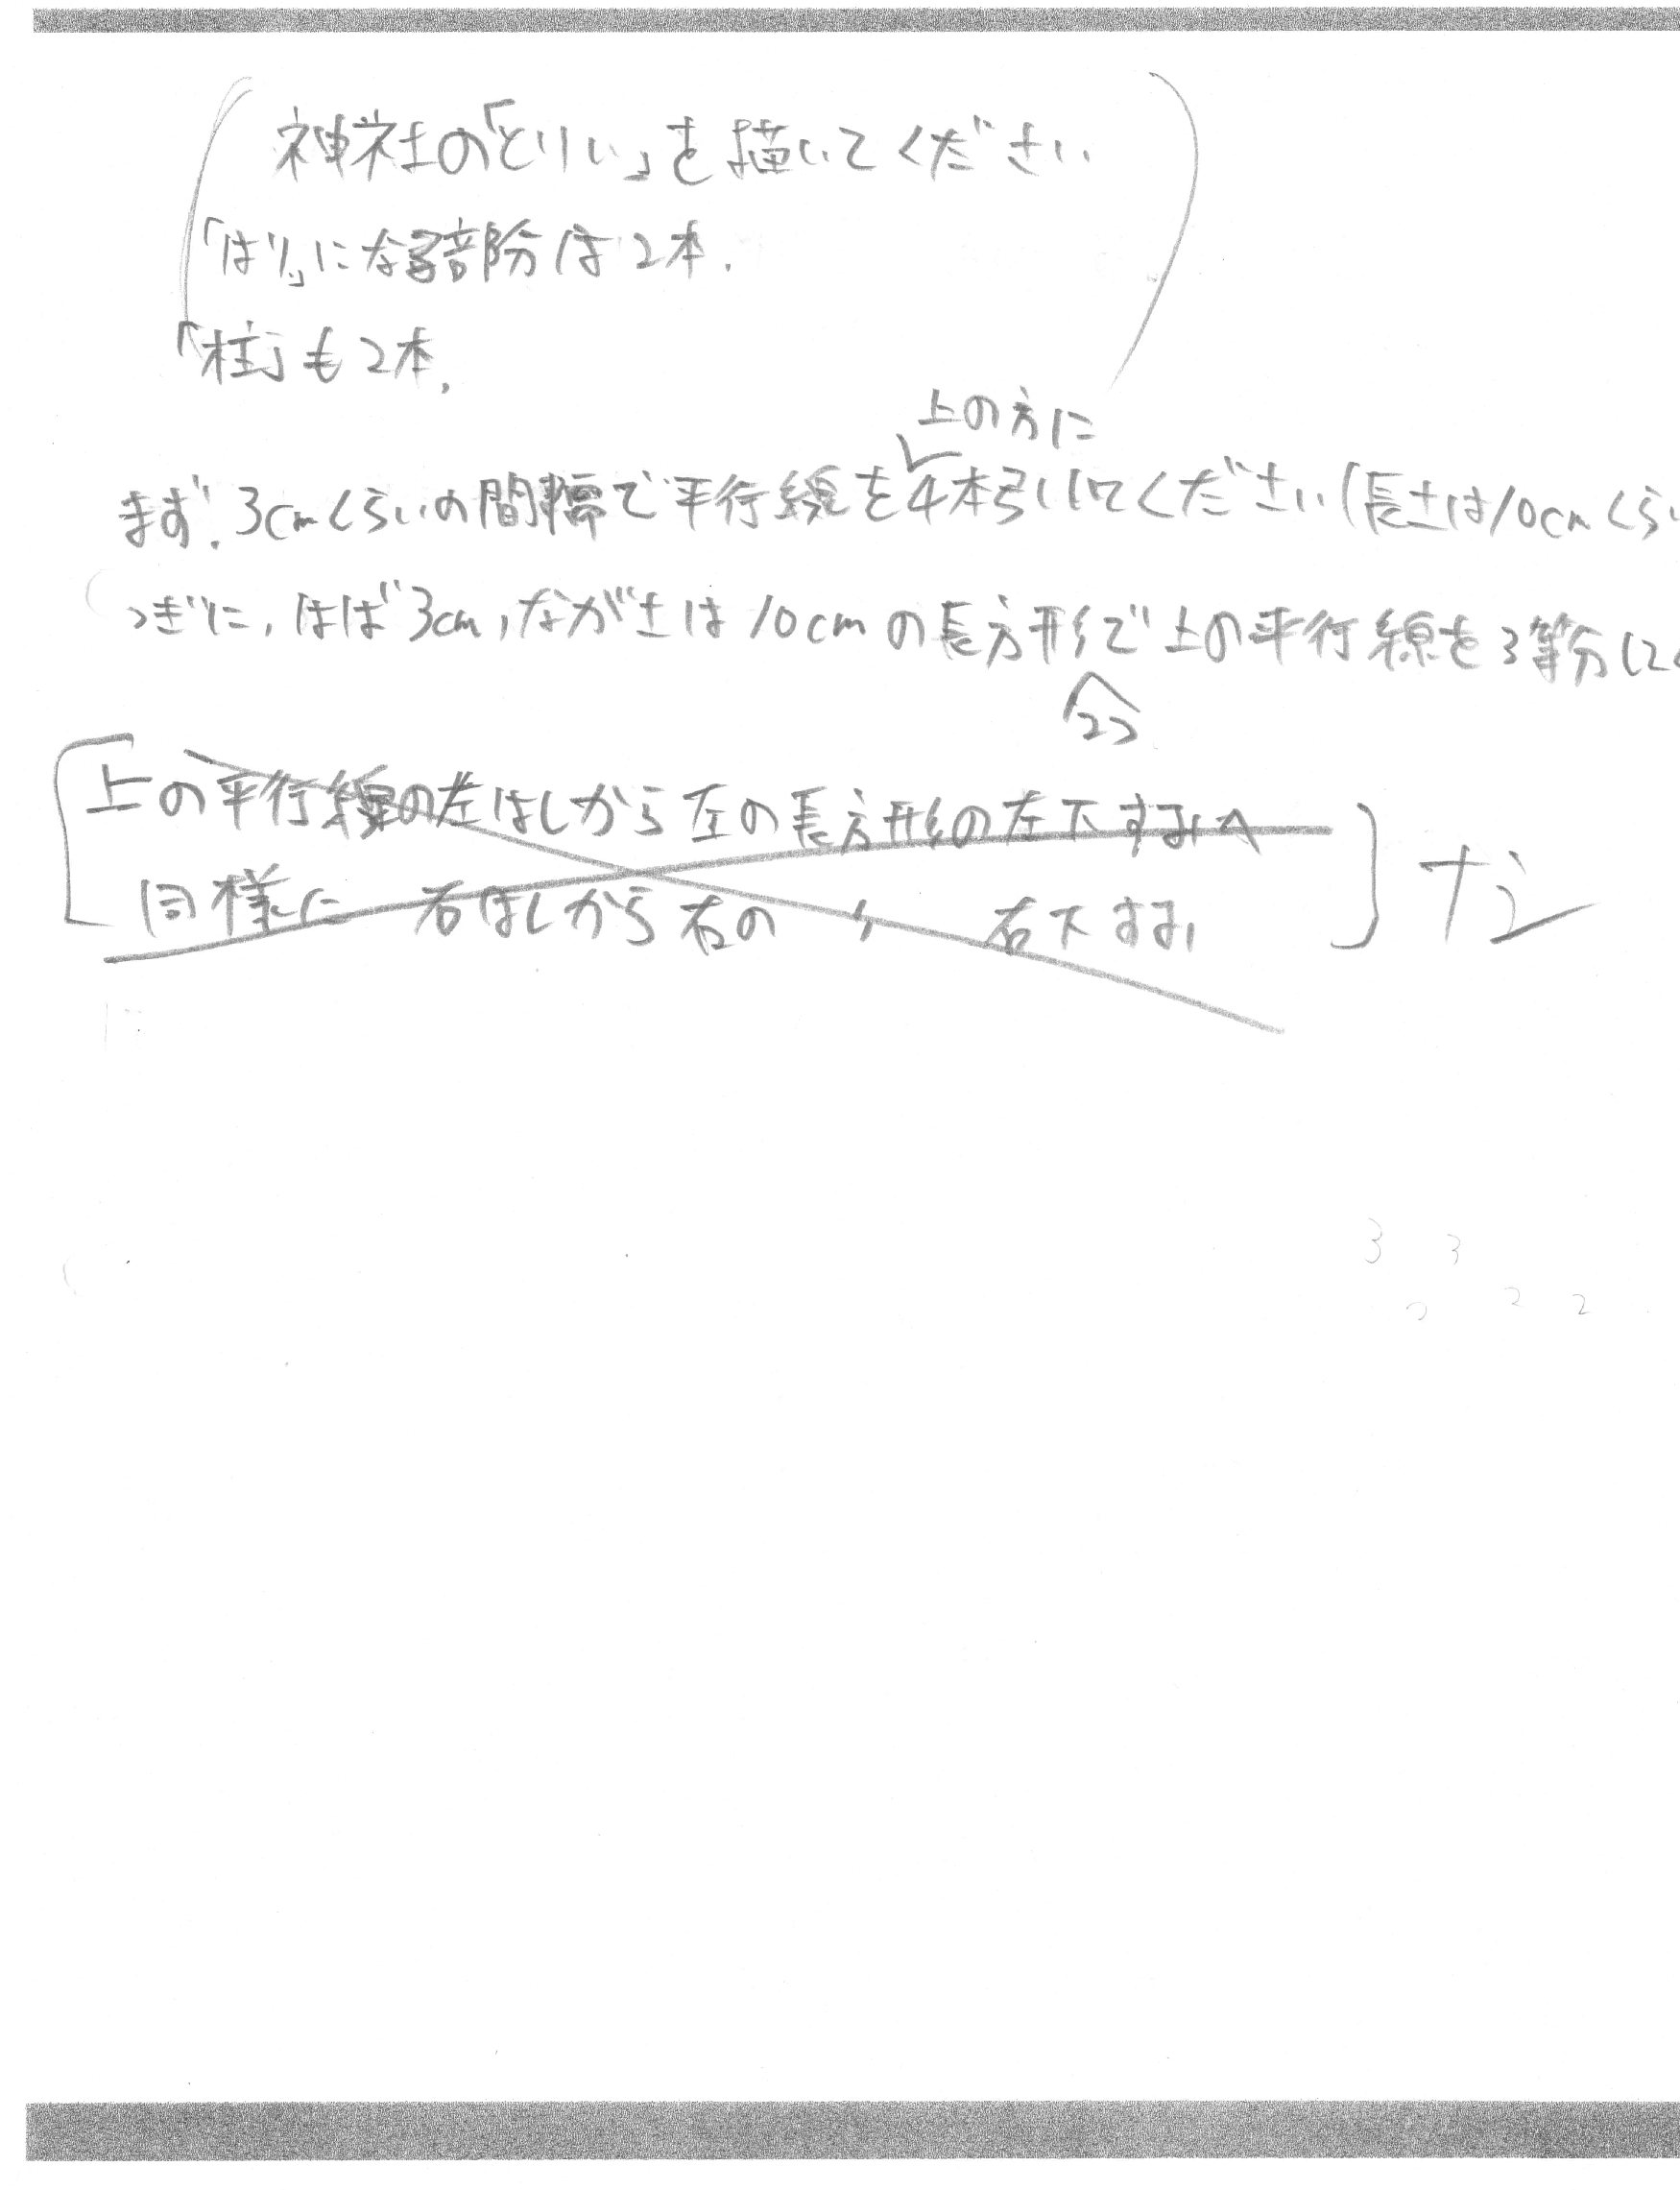 神社の「とりい」を描いてください
「はり」になる部分は2本.
「柱」も2本.
上の方に
まず.3cmくらいの間隔で平行線を4本引いてください(長さは10cmくらい
つぎに,はば3cm,ながさは10cmの長方形で上の平行線を3等分して
2つ
上の平行線の左はしから左の長方形の左下すみへ
同様に 右はしから右の 〃 右下すみ
ナシ
3 3
2 2 2